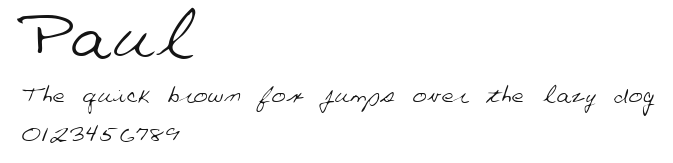 Paul
The quick brown fox jumps over the lazy dog
0123456789